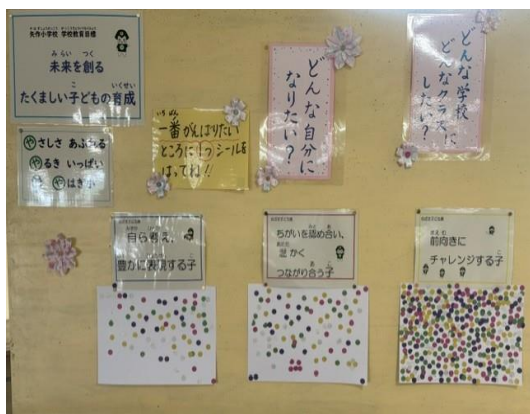 矢作小学校 学校教育目標
みらい つく
未来を創る
こ いくせい
たくましい子どもの育成
やさしさ あふれる
やるき いっぱい
いちばん
一番がんばりたい
ところに1つシールを
はってね!!
どんな自分に
なりたい?
どんな学校に
どんなクラスに
したい?
自ら考え、
豊かに表現する子
ちがいを認め合い、
つながり合う子
前向きに
チャレンジする子